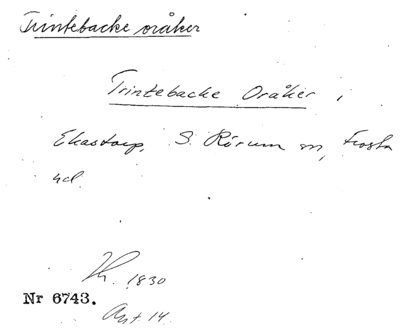 Trintebacke oråker
Trintebacke Oråker,
Ekastorp, S. Rörum sn, Frosta
hd.
1830
Nr 6743.
Akt 14